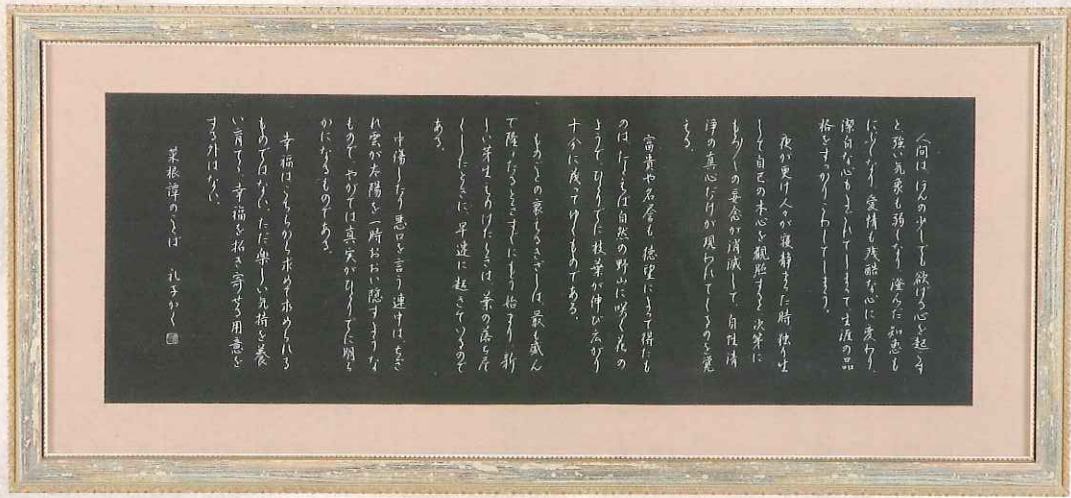 人间は、ほんの少しでも欲ばる心を起こす
と強い気象も弱くなり、澄んだ知恵も
にぶくなり、愛情も残酷な心に変わり、
潔白な心もよごれてしまって生涯の品
格をすっかりこわしてしまう。
夜が更け人々が寝静まった時、独り坐
して自己の本心を観照すると、次第に
もろもろの妄念が消滅して、自性清
浄の真心だけが現われてくるのを覚
える。
富貴や名誉も、徳望によって得たも
のは、たとえば自然の野山に咲く花の
ようで、ひとりでに枝葉が伸び広がり
十分に茂ってゆくものである。
ものごとの衰えるきざしは、最も盛ん
で隆々たるときすでにもう始まり、新
しい芽生えのはたらきは、葉の落ち尽
くしたときに、早速に起きているもので
ある。
中傷したり悪口を言う連中は、ちぎ
れ雲が太陽を一時おおい隠すような
もので、やがては真実がひとりでに明ら
かになるものである。
幸福は、こちらから求めて求められる
ものではない。ただ楽しい気持を養
い育てて、幸福を招き寄せる用意を
する外はない。
菜根譚のことば 礼子かく